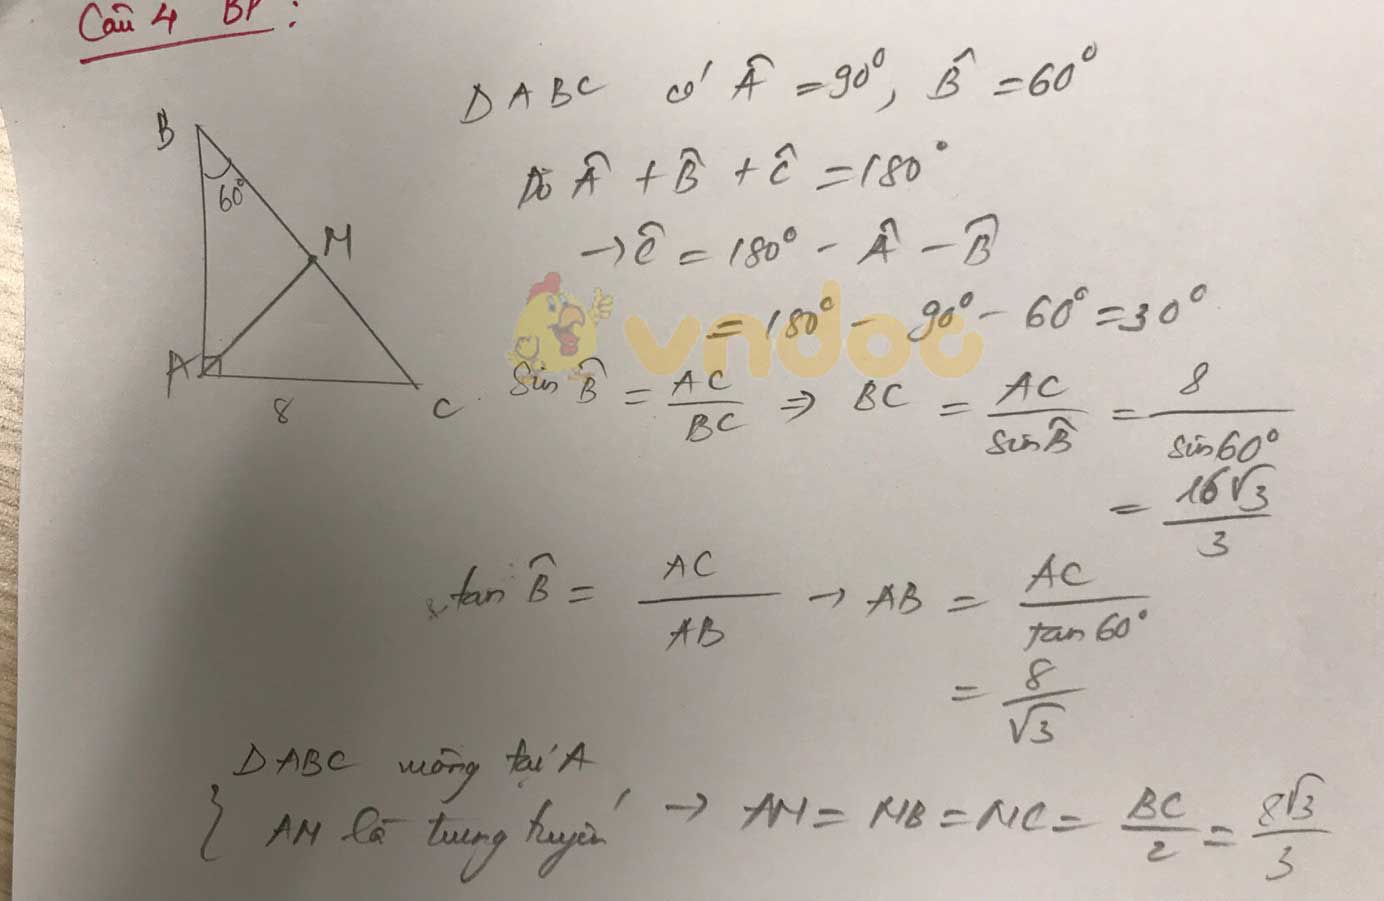 Câu 4 BP:
B
60°
M
A
8
C
Δ ABC có Â = 90°, B̂ = 60°
Do Â + B̂ + Ĉ = 180°
→ Ĉ = 180° - Â - B̂
= 180° - 90° - 60° = 30°
vndoc
Sin B̂ = AC/BC ⇒ BC = AC/sin B̂ = 8/sin 60°
= 16√3/3
tan B̂ = AC/AB → AB = AC/tan 60°
= 8/√3
Δ ABC vuông tại A
AM là trung tuyến → AM = MB = MC = BC/2 = 8√3/3